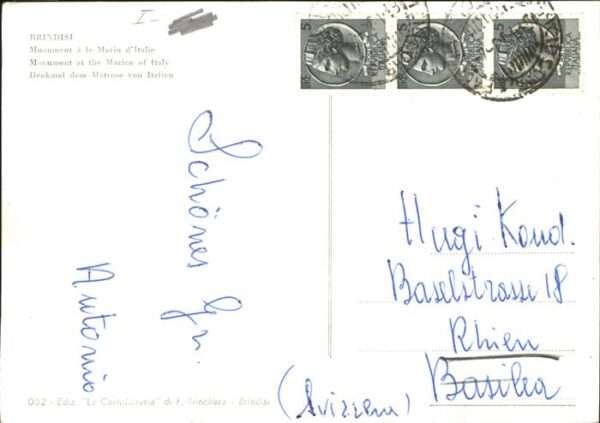 I-
BRINDISI
Monument à le Marin d'Italie
Monument at the Marine of Italy
Denkmal dem Matrose von Italien
Schönes Gr.
Antonio
Hugi Kond.
Baselstrasse 18
Rhien
Basilea
(Svizzera)
002 - Ediz. "La Cartolibraria" di F. - Brindisi
5
5
5